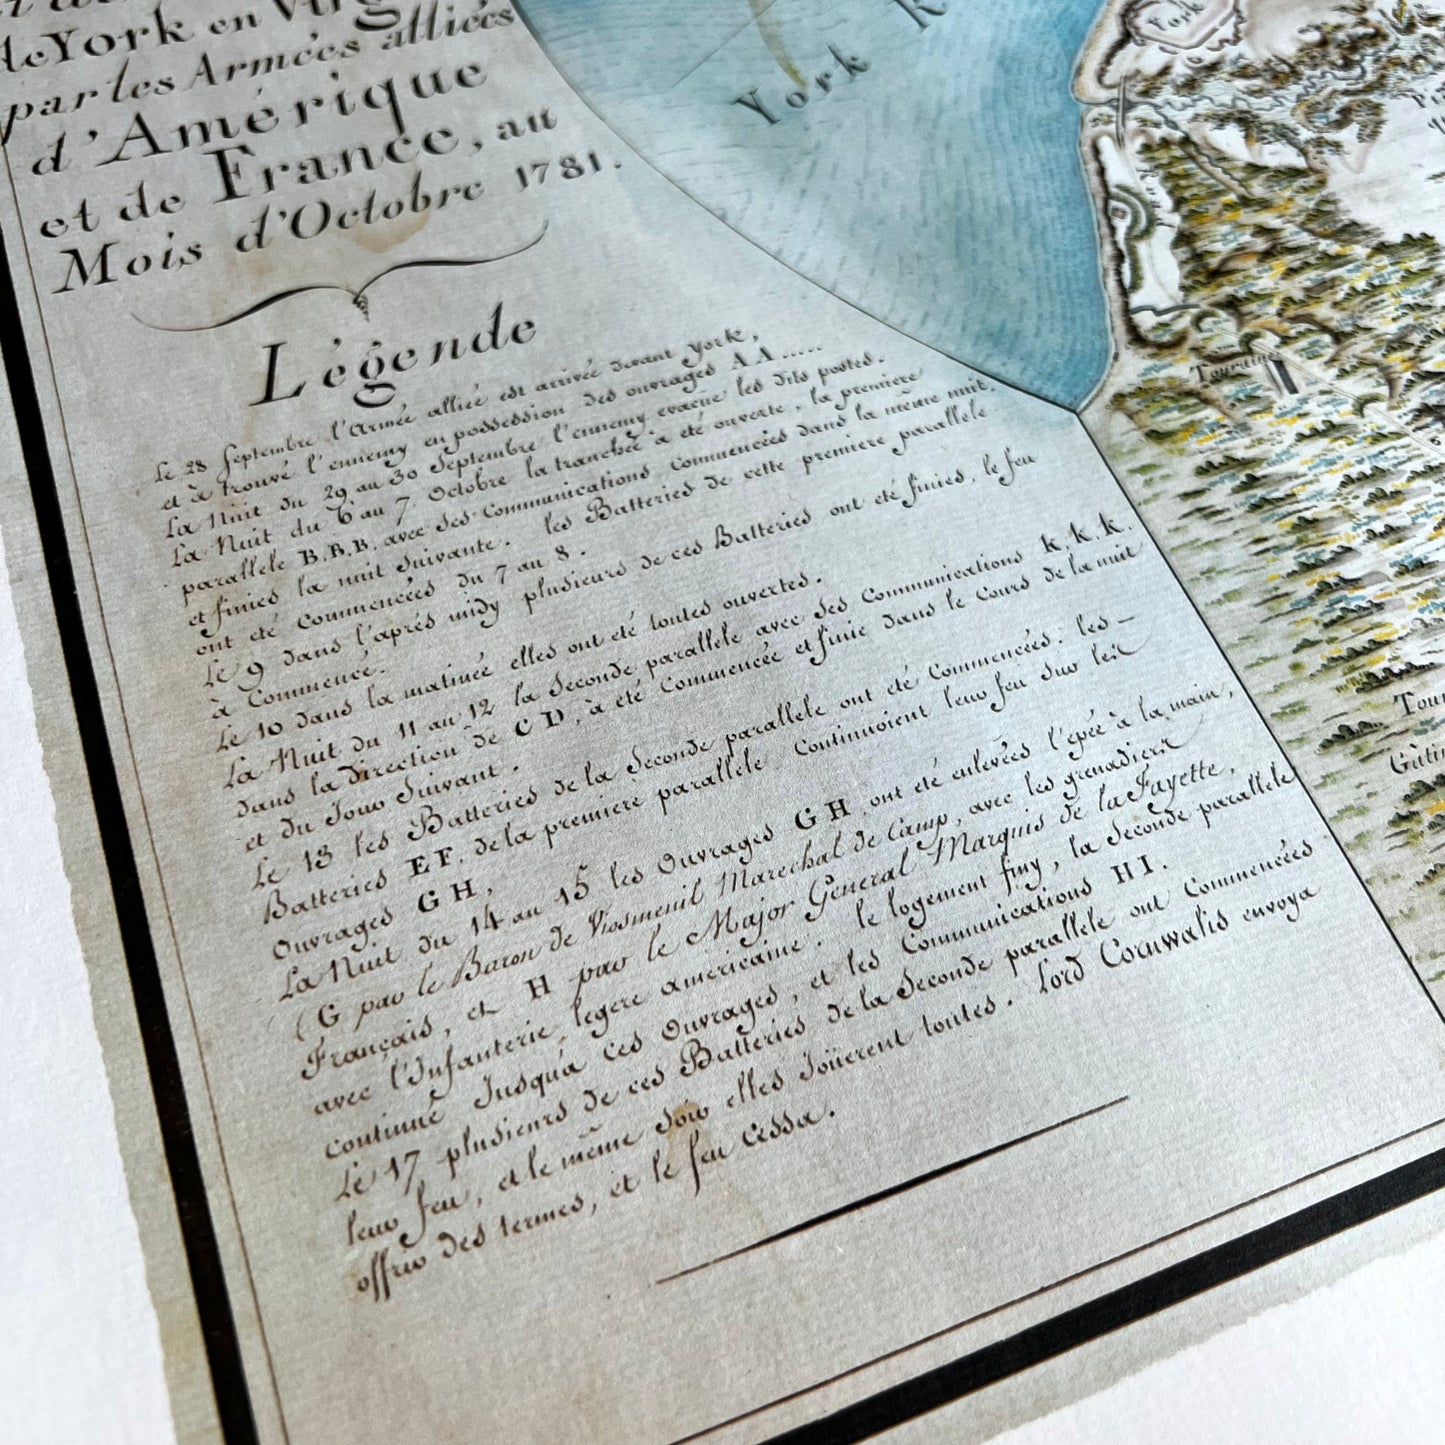 de York en
par les Armées alliées
d'Amérique
et de France, au
Mois d'Octobre 1781.
Légende
Le 28 Septembre l'Armée alliée est arrivée devant York,
et à trouvé l'ennemy en possession des ouvrages A A.....
La Nuit du 29 au 30 Septembre l'ennemy evacue les dits postes.
La Nuit du 6 au 7. Octobre la tranchée à été ouverte, la premiere
parallele B.B.B. avec ses Communications Commencées dans la même nuit,
et finies la nuit Suivante. les Batteries de cette premiere parallele
ont eté Commencées du 7 au 8.
Le 9 dans l'aprés midy plusieurs de ces Batteries ont eté finies, le feu
à Commencé.
Le 10 dans la matinée elles ont eté toutes ouvertes.
La Nuit du 11 au 12 la Seconde parallele avec ses Communications K.K.K.
dans la direction de C D, à eté Commencée et finie dans le Cours de la nuit
et du Jour Suivant.
Le 13 les Batteries de la Seconde parallele ont eté Commencées: les
Batteries E F. de la premiere parallele Continuoient leur feu sur les
Ouvrages G H,
La Nuit du 14 au 15 les Ouvrages G H, ont eté enlevées l'epée à la main,
(G par le Baron de Viosmenil Marechal de Camp, avec les grenadiers
Français, et H par le Major General Marquis de la Fayette,
avec l'Infanterie legere americaine. le logement finy, la Seconde parallele
continué Jusqu'à ces Ouvrages, et les Communications H I.
Le 17 plusieurs de ces Batteries de la Seconde parallele ont Commencées
leur feu, et le même Soir elles Joüerent toutes. Lord Cornwalis envoya
offrir des termes, et le feu Cessa.
York R
York